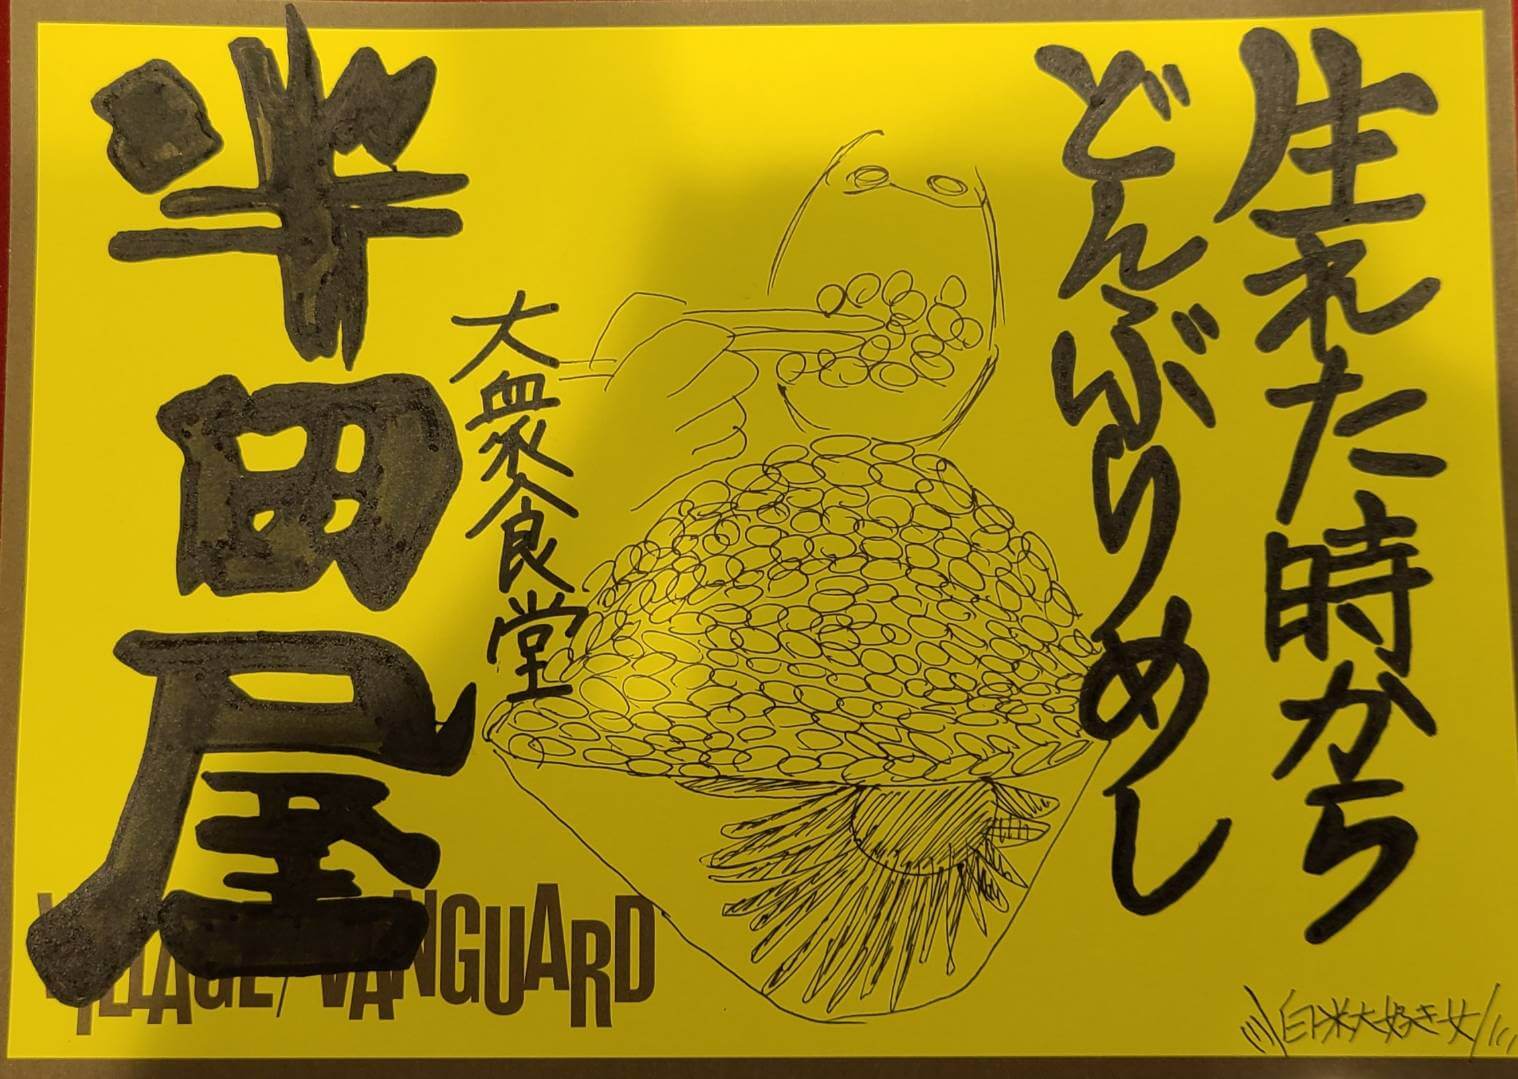 生れた時から
どんぶりめし
大衆食堂
半田屋
VILLAGE/VANGUARD
白米大好き女